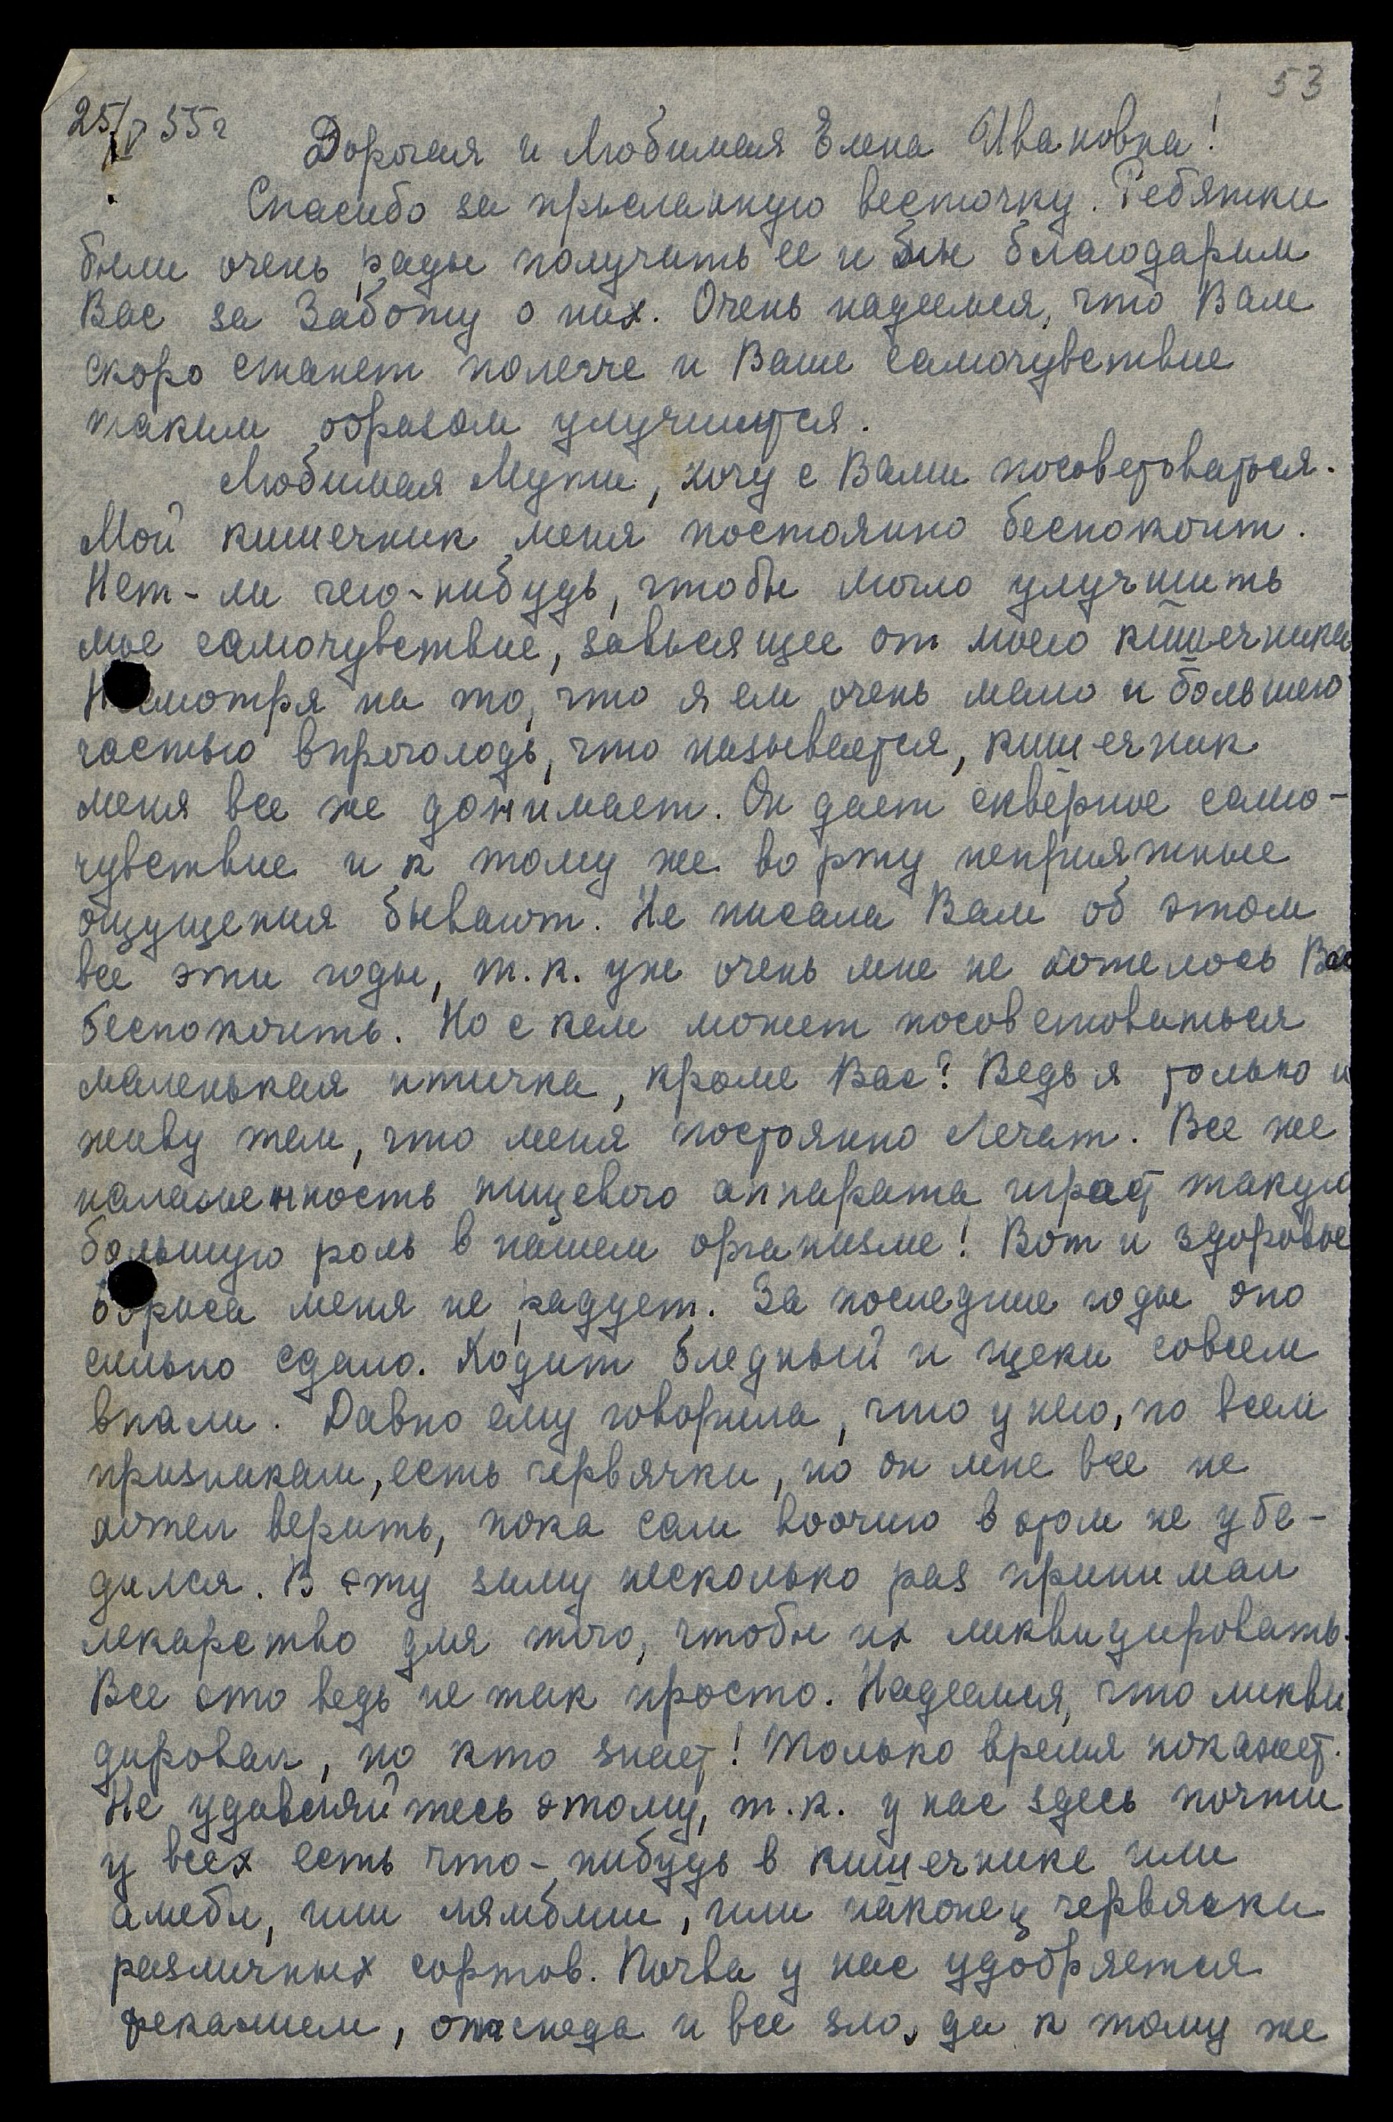 53
25/V 55 г
Дорогая и Любимая Елена Ивановна!
Спасибо за присланную весточку. Ребятки
были очень рады получить ее и благодарим
Вас за Заботу о них. Очень надеемся, что Вам
скоро станет полегче и Ваше самочувствие
таким образом улучшится.
Любимая Мути, хочу с Вами посоветоваться.
Мой кишечник меня постоянно беспокоит.
Нет-ли чего-нибудь, чтобы могло улучшить
мое самочувствие, зависящее от моего кишечника
Несмотря на то, что я ем очень мало и большею
частью впроголодь, что называется, кишечник
меня все же донимает. Он дает скверное само-
чувствие и к тому же во рту неприятные
ощущения бывают. Не писала Вам об этом
все эти годы, т.к. уж очень мне не хотелось Вас
беспокоить. Но с кем может посоветоваться
маленькая птичка, кроме Вас? Ведь я только и
живу тем, что меня постоянно лечат. Все же
налаженность пищевого аппарата играет такую
большую роль в нашем организме! Вот и здоровье
Бориса меня не радует. За последние годы оно
сильно сдало. Ходит бледный и щеки совсем
впали. Давно ему говорила, что у него, по всем
признакам, есть червячки, но он мне все не
хотел верить, пока сам воочию в этом не убе-
дился. В эту зиму несколько раз принимал
лекарство для того, чтобы их ликвидировать.
Все это ведь не так просто. Надеемся, что ликви
дировал, но кто знает! Только время покажет.
Не удивляйтесь этому, т.к. у нас здесь почти
у всех есть что-нибудь в кишечнике или
амебы, или лямблии, или наконец червячки
различных сортов. Почва у нас удобряется
фекалием, отсюда и все зло, да к тому же